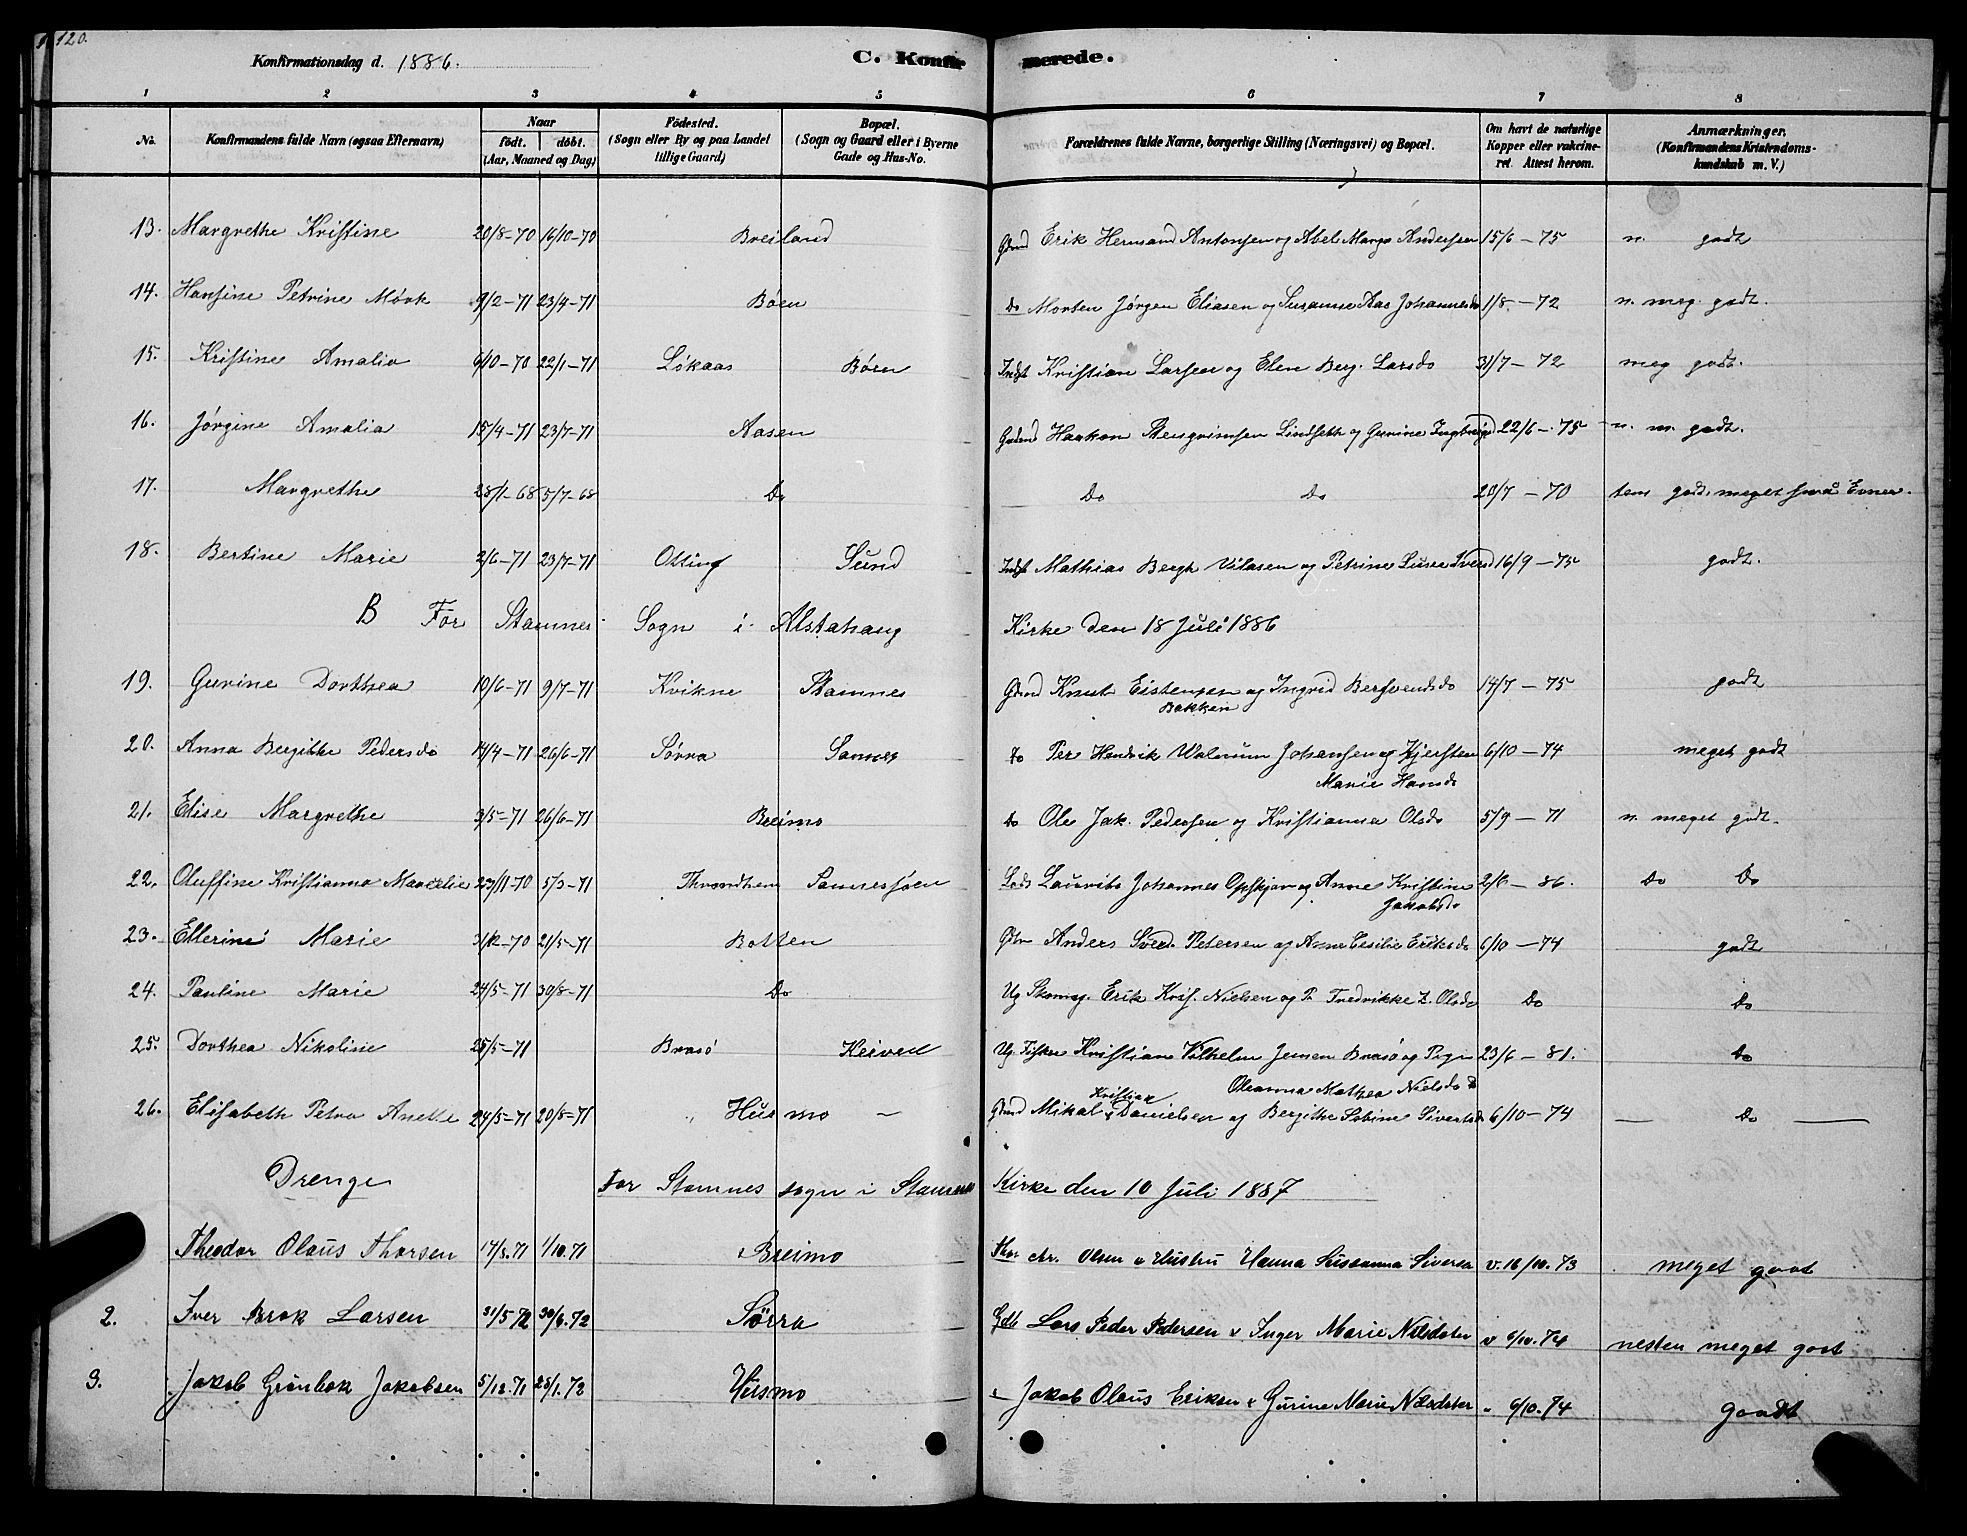 120.
Konfirmationsdag d. 1886.
C. Konfirmerede.
1 2 3 4 5 6 7 8
No. Konfirmandens fulde Navn (ogsaa Efternavn) Naar født. døbt. (Aar, Maaned og Dag) Fødested. (Sogn eller By og paa Landet tillige Gaard) Bopæl. (Sogn og Gaard eller i Byerne Gade og Hus-No. Forældrenes fulde Navne, borgerlige Stilling (Næringsvei) og Bopæl. Om havt de naturlige Kopper eller vakcineret. Attest herom. Anmærkninger. (Konfirmandens Kristendomskundskab m. V.)
13. Margrethe Kristine 20/8-70 16/10-70 Breiland Gbrd Erik Hermand Antonsen og Abel Margr Andersen 15/6-75 n. godt
14. Hansine Petrine Mørk 9/2-71 23/4-71 Bøen do Morten Jørgen Eliasen og Susanna Aas Johannesd 1/8-72 n. meg. godt.
15. Kristine Amalia 6/10-70 22/1-71 Løkaas Bøen Indst Kristian Larsen og Elen Berg. Larsdo 31/7-72 meg godt.
16. Jørgine Amalia 15/4-71 23/7-71 Aasen Gbrd Haakon Stengrimsen Lindseth og Gurine Ingbrigd 22/6-75 n. m. godt.
17. Margrethe 28/1-68 5/7-68 Do Do Do 20/7-70 tem god. meget små Evner.
18. Bertine Marie 2/6-71 23/7-71 Olting Sund Indst Mathias Bergh Vilasen og Petrine Luise Iversd 16/9-75 godt.
B For Stamnes Sogn i Alstahaug Kirke den 18 Juli 1886
19. Gurine Dorthea 10/6-71 9/7-71 Kvikne Stamnes Gbrd Knut Eistensen og Ingrid Bersvendsdo 14/7-75 godt
Bakken
20. Anna Bergithe Pedersdo 14/4-71 26/6-71 Sørra Sannes do Per Hendrik Walnum Johansen og Kjersten 6/10-74 meget godt
Marie Hansdo
21. Elise Margrethe 3/5-71 26/6-71 Breimo do Ole Jak. Pedersen og Kristianna Olsdo 5/9-71 n. meget godt.
22. Oluffine Kristianna Marcelie 23/11-70 5/3-71 Throndhem Sannessjøen Lods Lauritz Johannes Opskjon og Anne Kristine 2/6-86. Do Do
Jakobsdo
23. Ellerine Marie 31/12-70 21/5-71 Botten Gbr Anders Sverd. Petersen og Anne Cesilie Eriksdo 6/10-74 godt
24. Pauline Marie 24/5-71 30/8-71 Do Ug Skomag. Erik Kris. Nielsen og P. Fredrikke Z. Olsdo Do Do
25. Dorthea Nikoline 25/5-71 Brasø Keived Ug. Fisker Kristian Vilhelm Jensen Brasø og Pige 23/6-81. Do
Oleanna Mathea Nielsdo
26. Elisabeth Petra Anette 24/5-71 20/8-71 Husmo - Gbrd Mikal Kristian Danielsen og Bergithe Sabine Sivertsd 6/10-74 — Do —
Drenge For Stamnes sogn i Stamnes Kirke den 10 Juli 1887
Theodor Olaus Thorsen 17/8.71 1/10.71 Breimo Thor Chr. Olsen & Hustru Hanna Susanna Siversd v. 16/10.73 meget godt
2. Iver Brok Larsen 31/5.72 30/6.72 Sørra Gdb Lars Peder Pedersen & Inger Marie Nilsdater v 6/10.74 nesten meget godt
3. Jakob Grönbek Jakobsen 5/12.71 28/1.72 Husmo - Jakob Olaus Eriksen & Gurine Marie Nilsdater " 6/10.74 godt